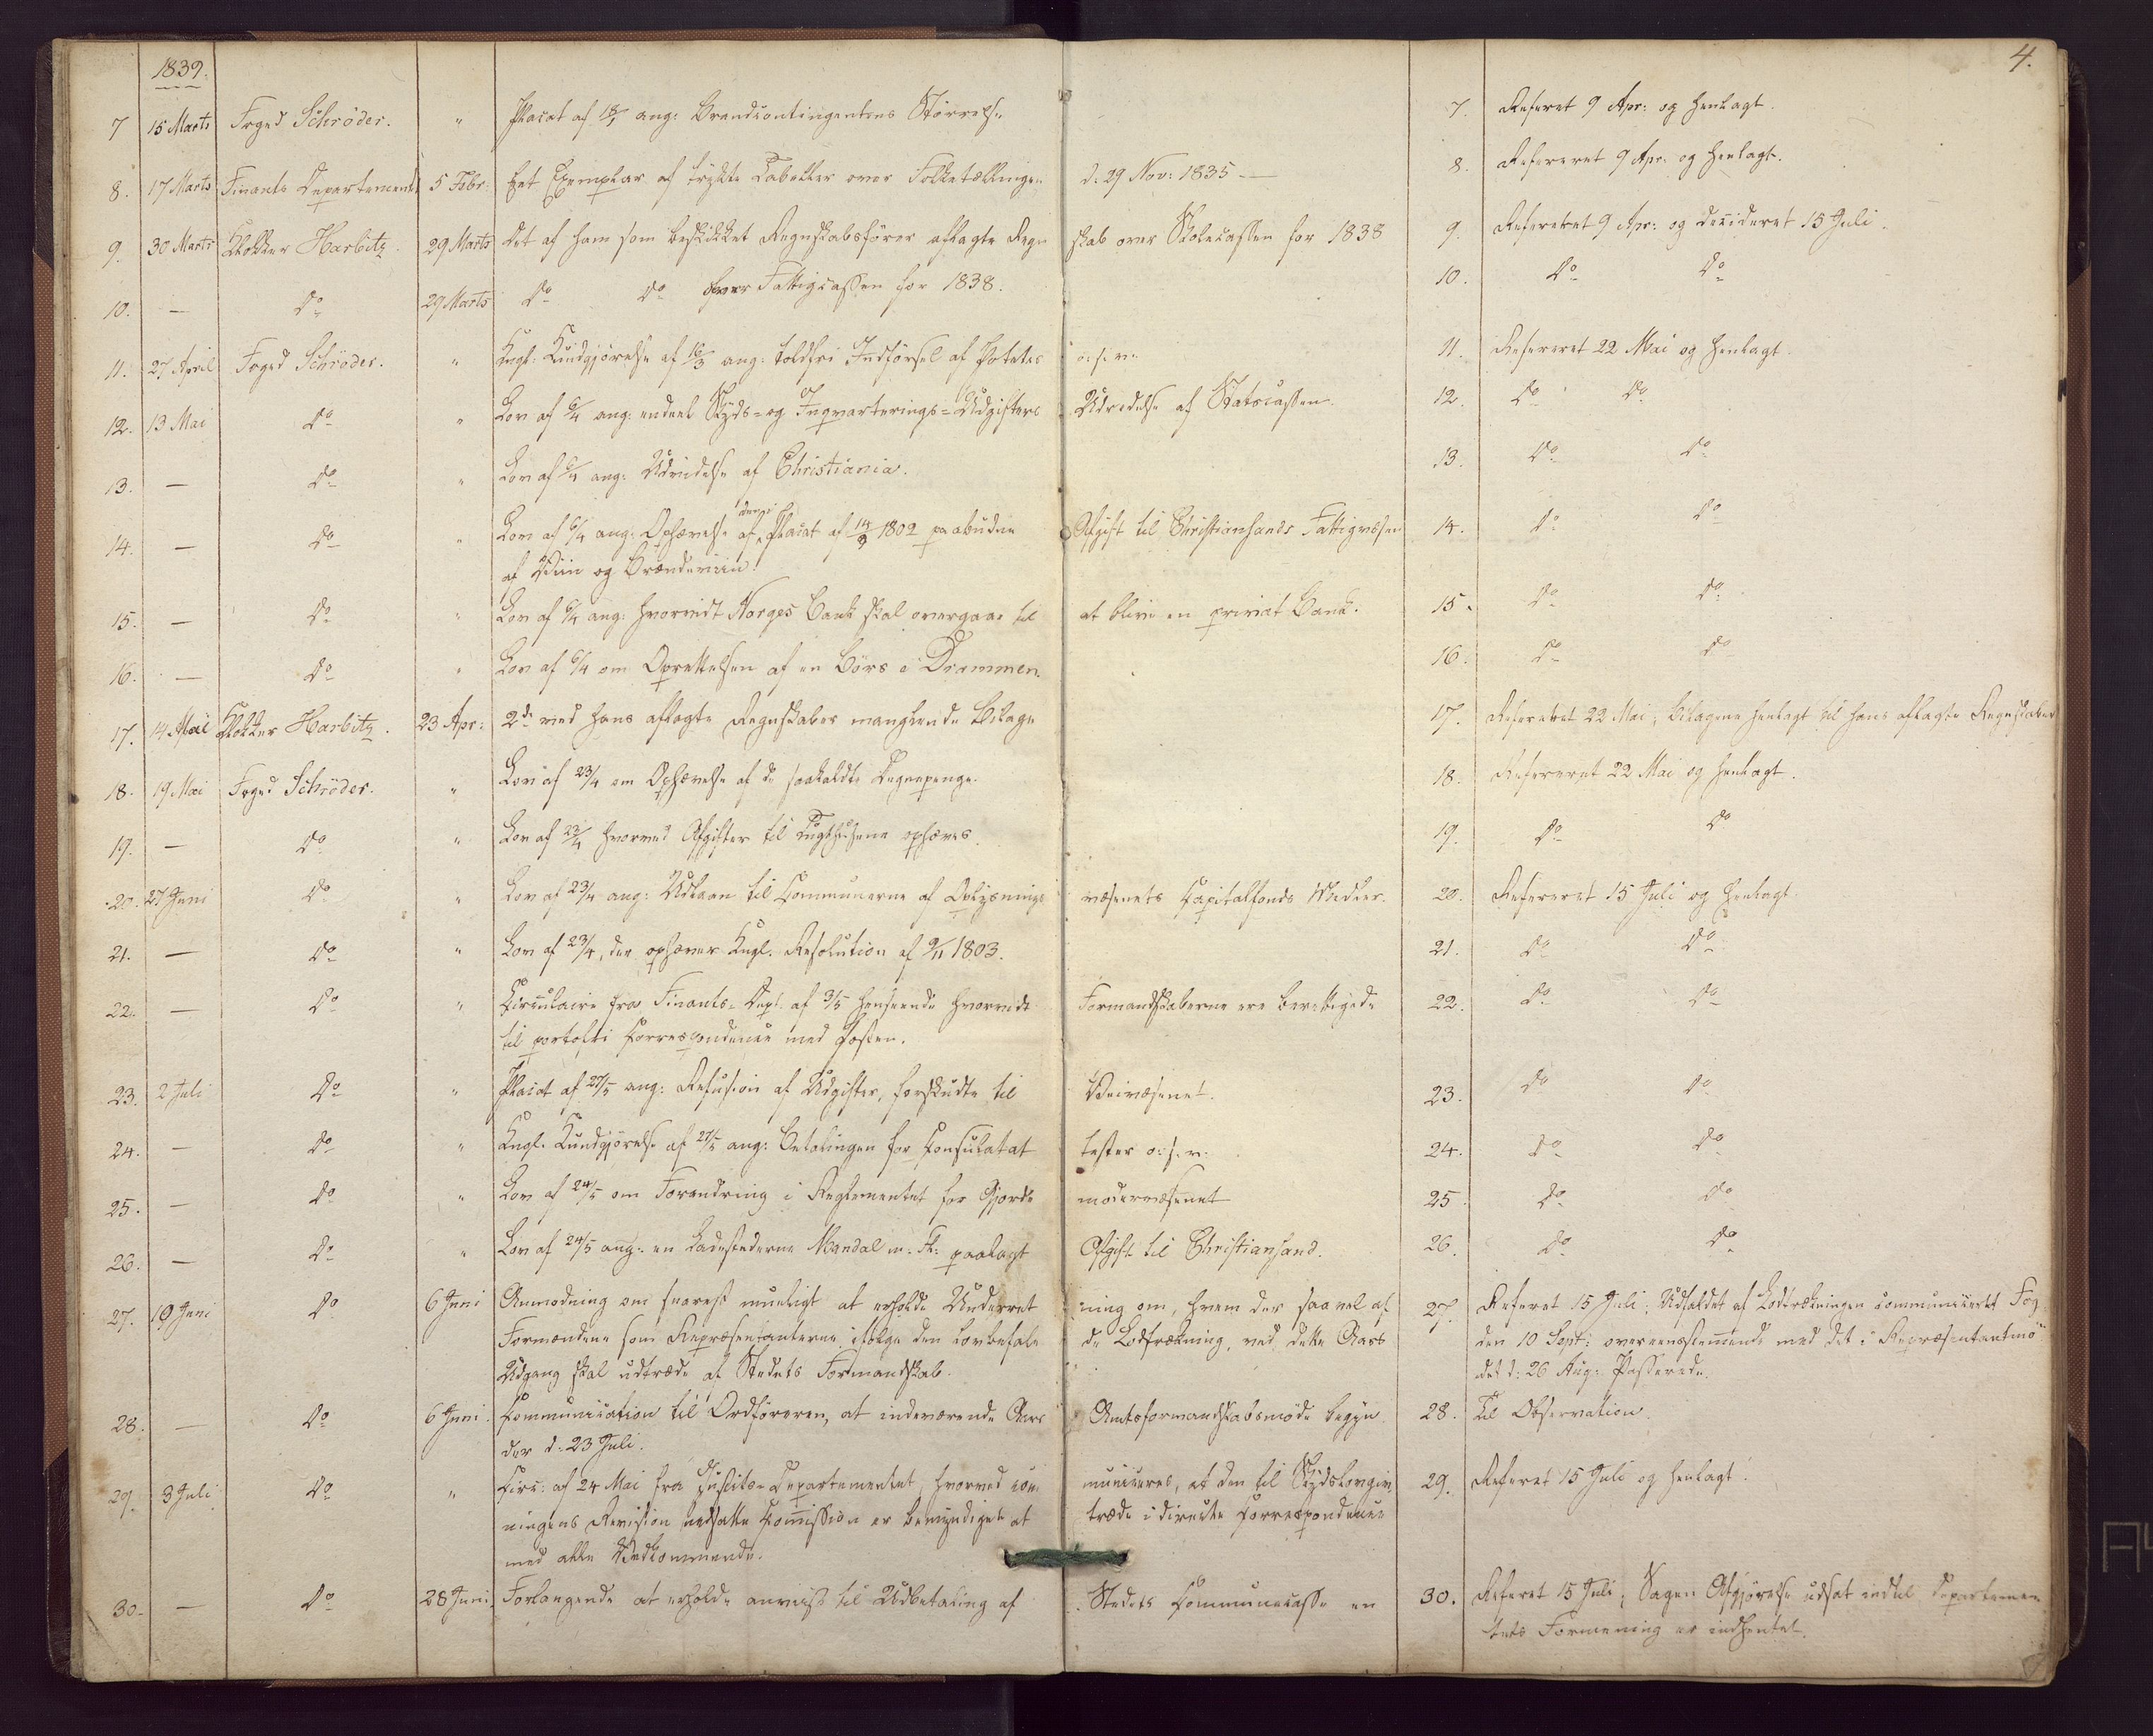 1839.
4.
7 15 Marts Foged Schröder. " Placat af 18/1 ang: Brandcontingentens Størrelse 7. Referet 9 Apr: og henlagt.
8. 17 Marts Finants Departement 5 Febr: Eet Exemplar af trykte Tabeller over Folketællingen d: 29 Nov: 1835 — 8. Refereret 9 Apr: og henlagt.
9. 30 Marts Klokker Harbitz. 29 Marts Det af ham som beskikket Regnskabsfører aflagte Regnskab over Skolecassen for 1838 9. Refereret 9 Apr: og decideret 15 Juli.
10. — Do 29 Marts Do Do over Fattigcassen for 1838. 10. Do Do
11. 27 April Foged Schröder. " Kngl: Kundgjørelse af 16/3 ang: toldfri Indførsel af Potetes o: s: v: 11. Refereret 22 Mai og henlagt.
12. 13 Mai Do " Lov af 6/4 ang: endeel Skyds- og Inqvarterings-Udgifters Udredelse af Statscassen. 12. Do Do
13. — Do " Lov af 6/4 ang: Udvidelse af Christiania. 13. Do Do
14. — Do " Lov af 6/4 ang: Ophævelse af den i Placat af 14/9 1802 paabudne Afgift til Christiansands Fattigvæsen 14. Do Do
af Viin og Brændeviin.
15. — Do " Lov af 6/4 ang: hvorvidt Norges Bank skal overgaae til at blive en privat Bank. 15. Do Do
16. — Do " Lov af 6/4 om Oprettelsen af en Börs i Drammen. 16. Do Do
17. 14 Mai Klokker Harbitz. 23 Apr: 2de ved hans aflagte Regnskaber manglende Bilage 17. Refereret 22 Mai; Bilagene henlagt til hans aflagte Regnskaber
18. 19 Mai Foged Schröder. " Lov af 23/4 om Ophævelse af de saakaldte Degnepenge. 18. Refereret 22 Mai og henlagt.
19. — Do " Lov af 23/4 hvorved Afgifter til Tugthusene ophæves. 19. Do Do
20. 27 Juni Do " Lov af 23/4 ang: Udlaan til Communerne af Oplysningsvæsenets Capitalfonds Midler. 20. Refereret 15 Juli og henlagt.
21. — Do " Lov af 23/4, der ophæver Kngl. Resolution af 9/11 1803. 21. Do Do
22. — Do " Circulaire fra Finants-Dept. af 3/5 henseende hvorvidt Formandskaberne ere berettigede 22. Do Do
til portofri Correspondence med Posten.
23. 2 Juli Do " Placat af 27/5 ang: Refusion af Udgifter, forskudte til Veivæsenet. 23. Do Do
24. — Do " Kngl. Kundgjørelse af 27/5 ang: Betalingen for Consulatattester o: s: v: 24. Do Do
25. — Do " Lov af 24/5 om Forandring i Reglementet for Gjordemodervæsenet 25. Do Do
26. — Do " Lov af 24/5 ang: en Ladestederne Mandal m. Fl: paalagt Afgift til Christiansand. 26. Do Do
27. 19 Juni Do 6 Juni Anmodning om snarest mueligt at erholde Underretning om, hvem der saavel af 27. Referet 15 Juli; Udfaldet af Lodtrækningen communiceret Fog-
Formændene som Repræsentanterne ifølge den lovbefalede Lodtrækning, ved dette Aars den 10 Sept: overensstemmende med det i Repræsentantmö-
Udgang skal udtræde af Stedets Formandskab. det d: 26 Aug: Passerede.
28. — Do 6 Juni Communication til Ordføreren, at indeværende Aars Amtsformandskabsmøde begyn- 28. Til Observation.
der d: 23 Juli.
29. 3 Juli Do " Circ: af 24 Mai fra Justits-Departementet, hvorved communiceres, at den til Skydslovgiv- 29. Referet 15 Juli og henlagt.
ningens Revision nedsatte Comission er bemyndiget at træde i directe Correspondence
med alle Vedkommende.
30. — Do 28 Juni Forlangende at erholde anviist til Udbetaling af Stedets Communecasse en 30. Referet 15 Juli; Sagens Afgjørelse udsat indtil Departemen-
tets Formening er indhentet.